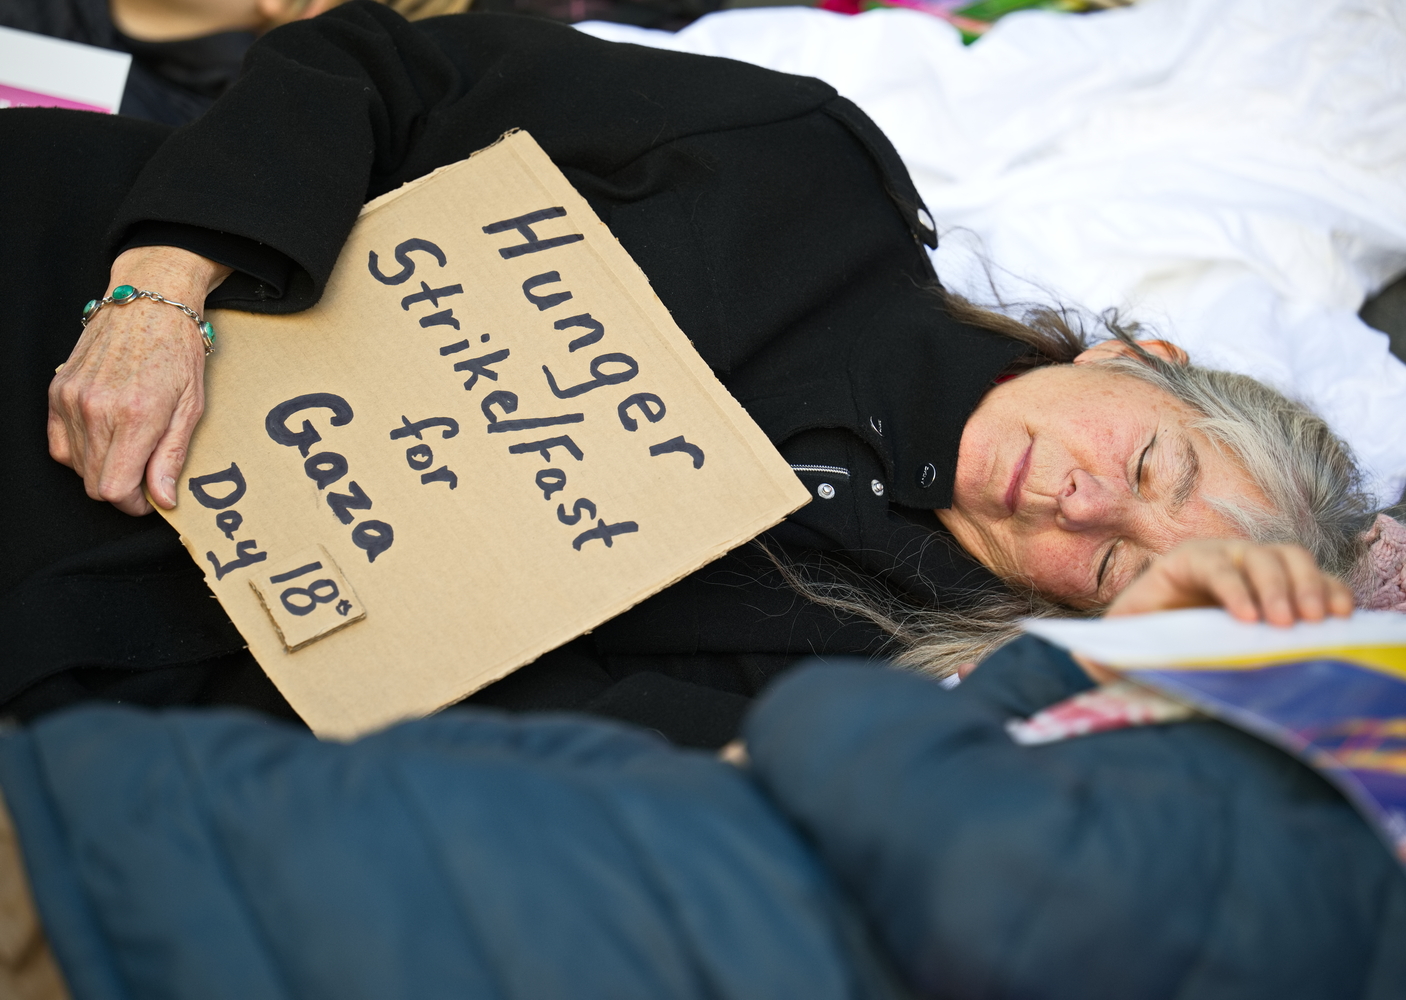 Hunger
Strike/Fast
for
Gaza
Day 18*